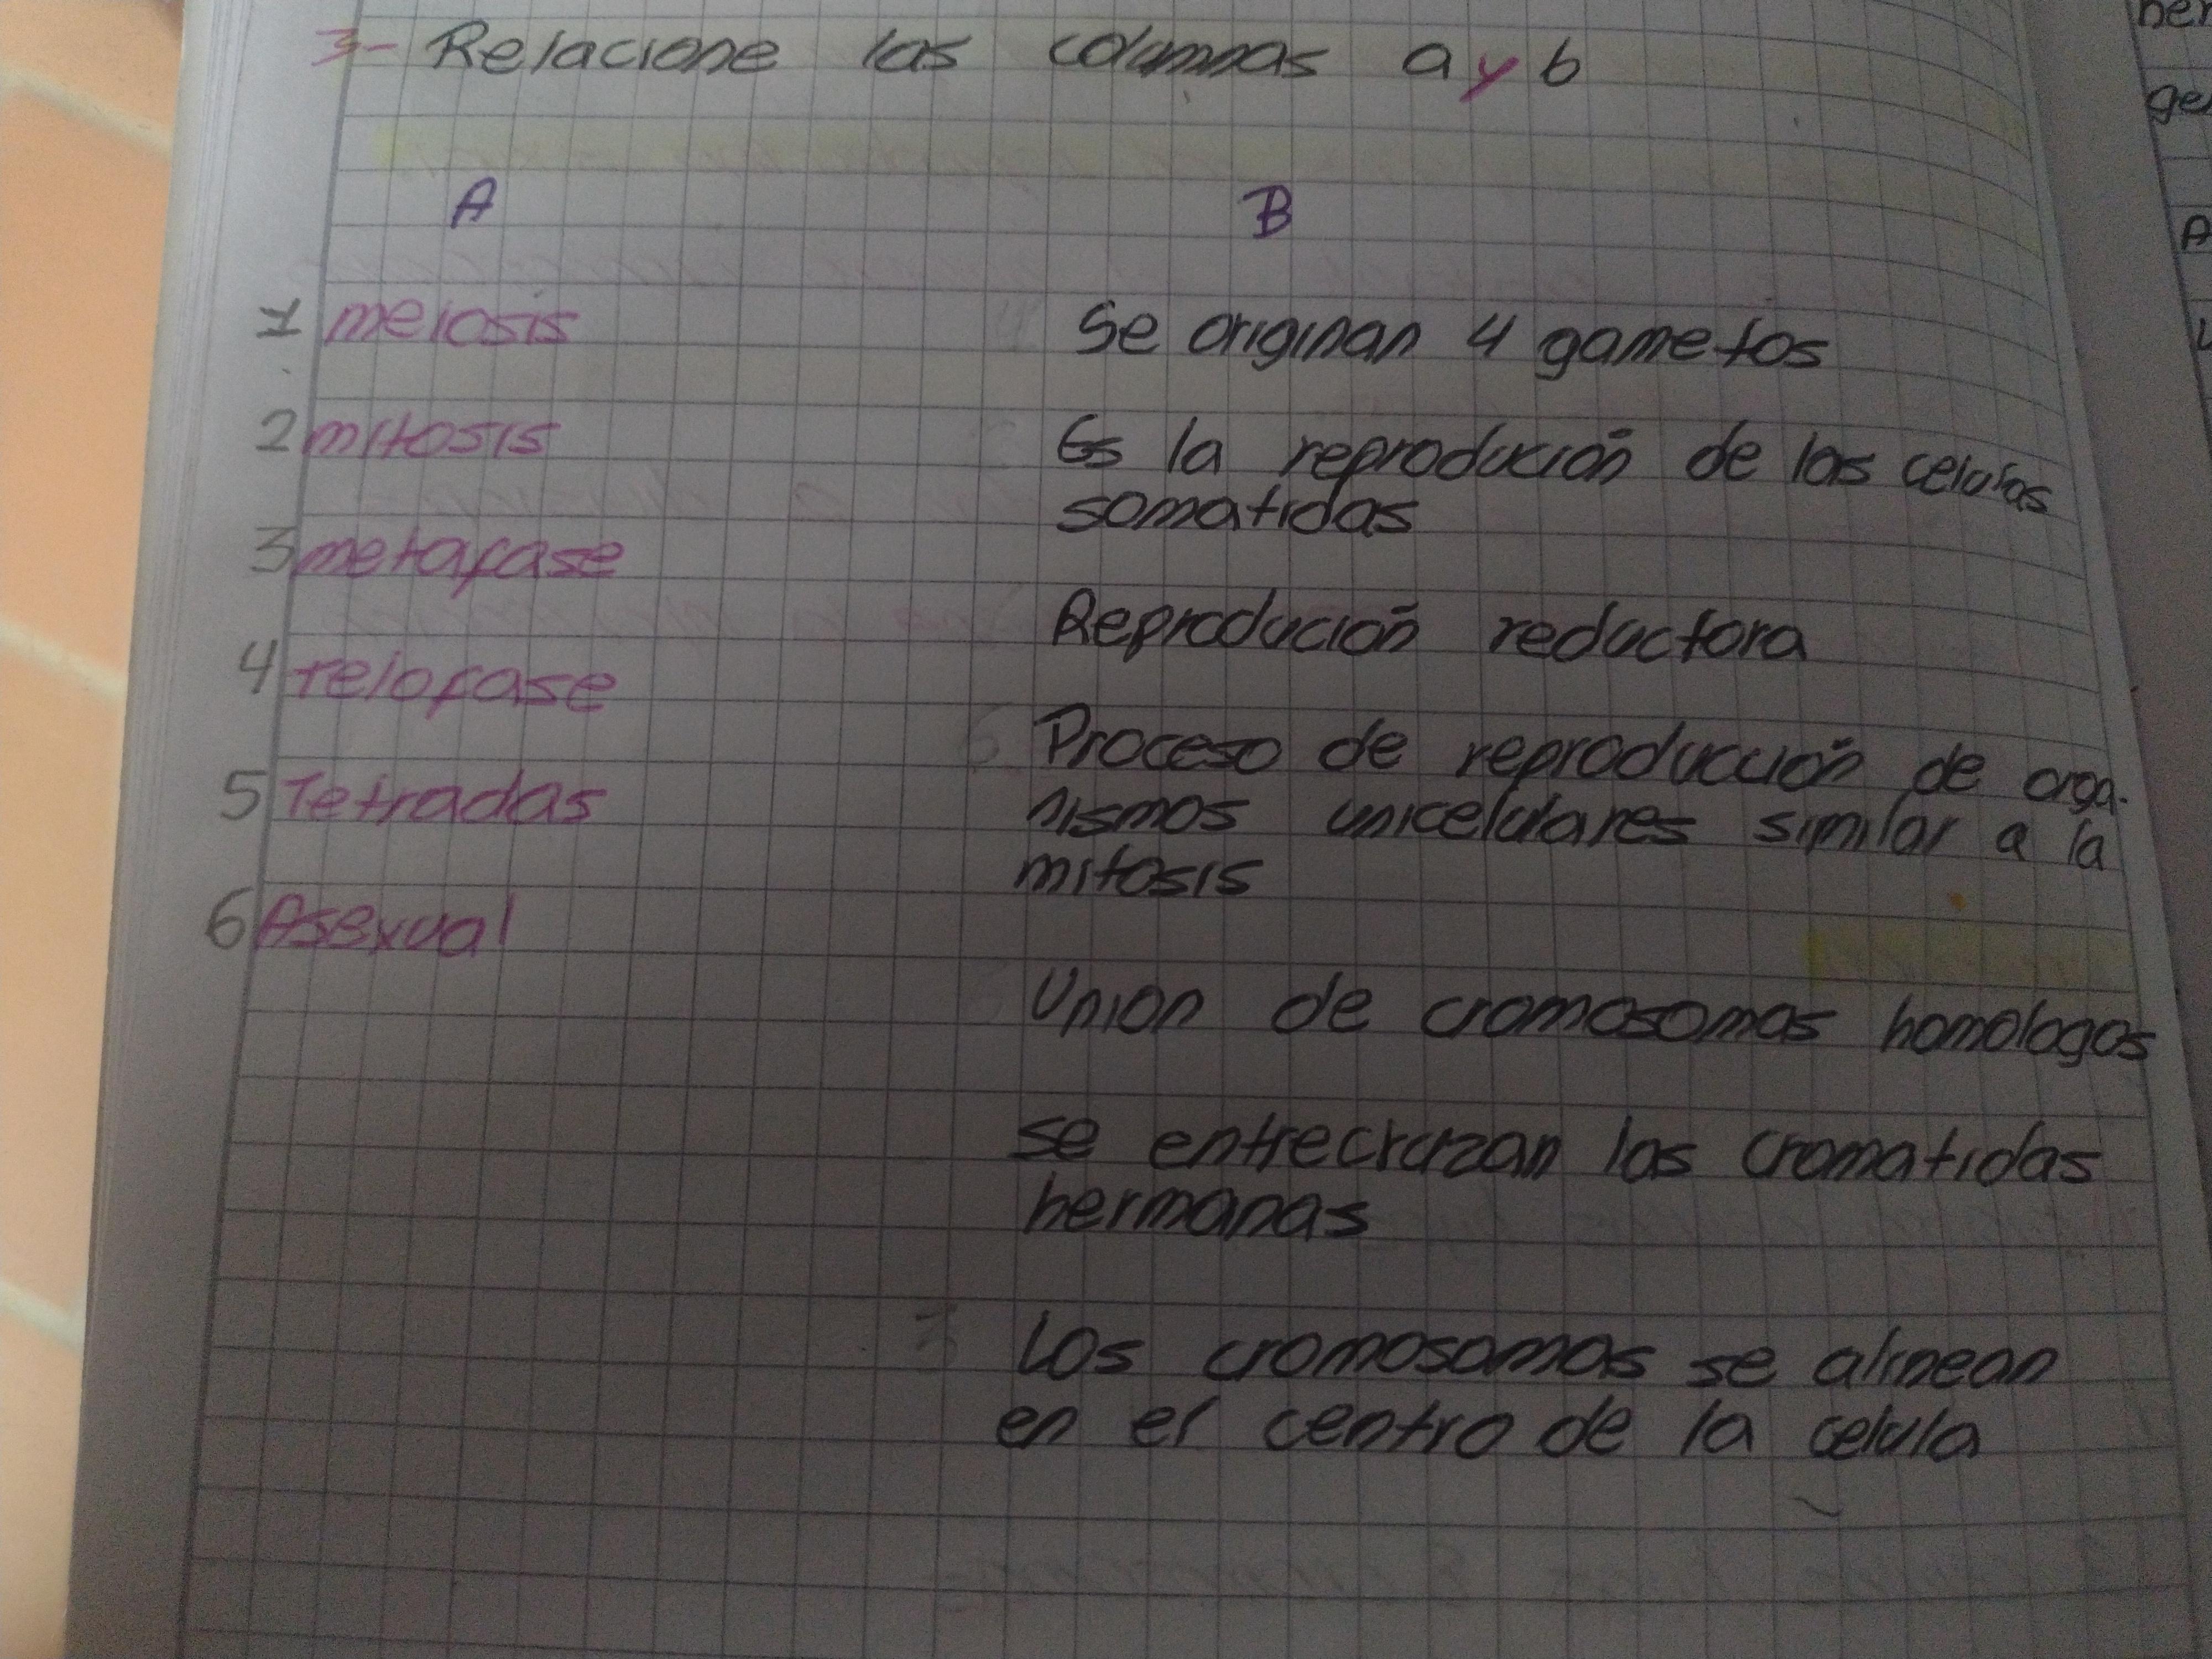 3- Relacione las columnas a y b
A B
1 meiosis
2 mitosis
3 metafase
4 telofase
5 Tetradas
6 Asexual
Se originan 4 gametos
Es la reproducion de las celulas
somatidas
Reproducion reductora
Proceso de reproduccion de orga-
nismos unicelulares similar a la
mitosis
Union de cromosomas homologos
se entrecruzan las cromatidas
hermanas
Los cromosomas se alinean
en el centro de la celula
ge